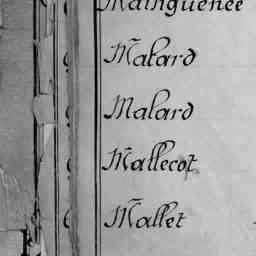 Mainguenée
Malard
Malard
Mallecot
Mallet